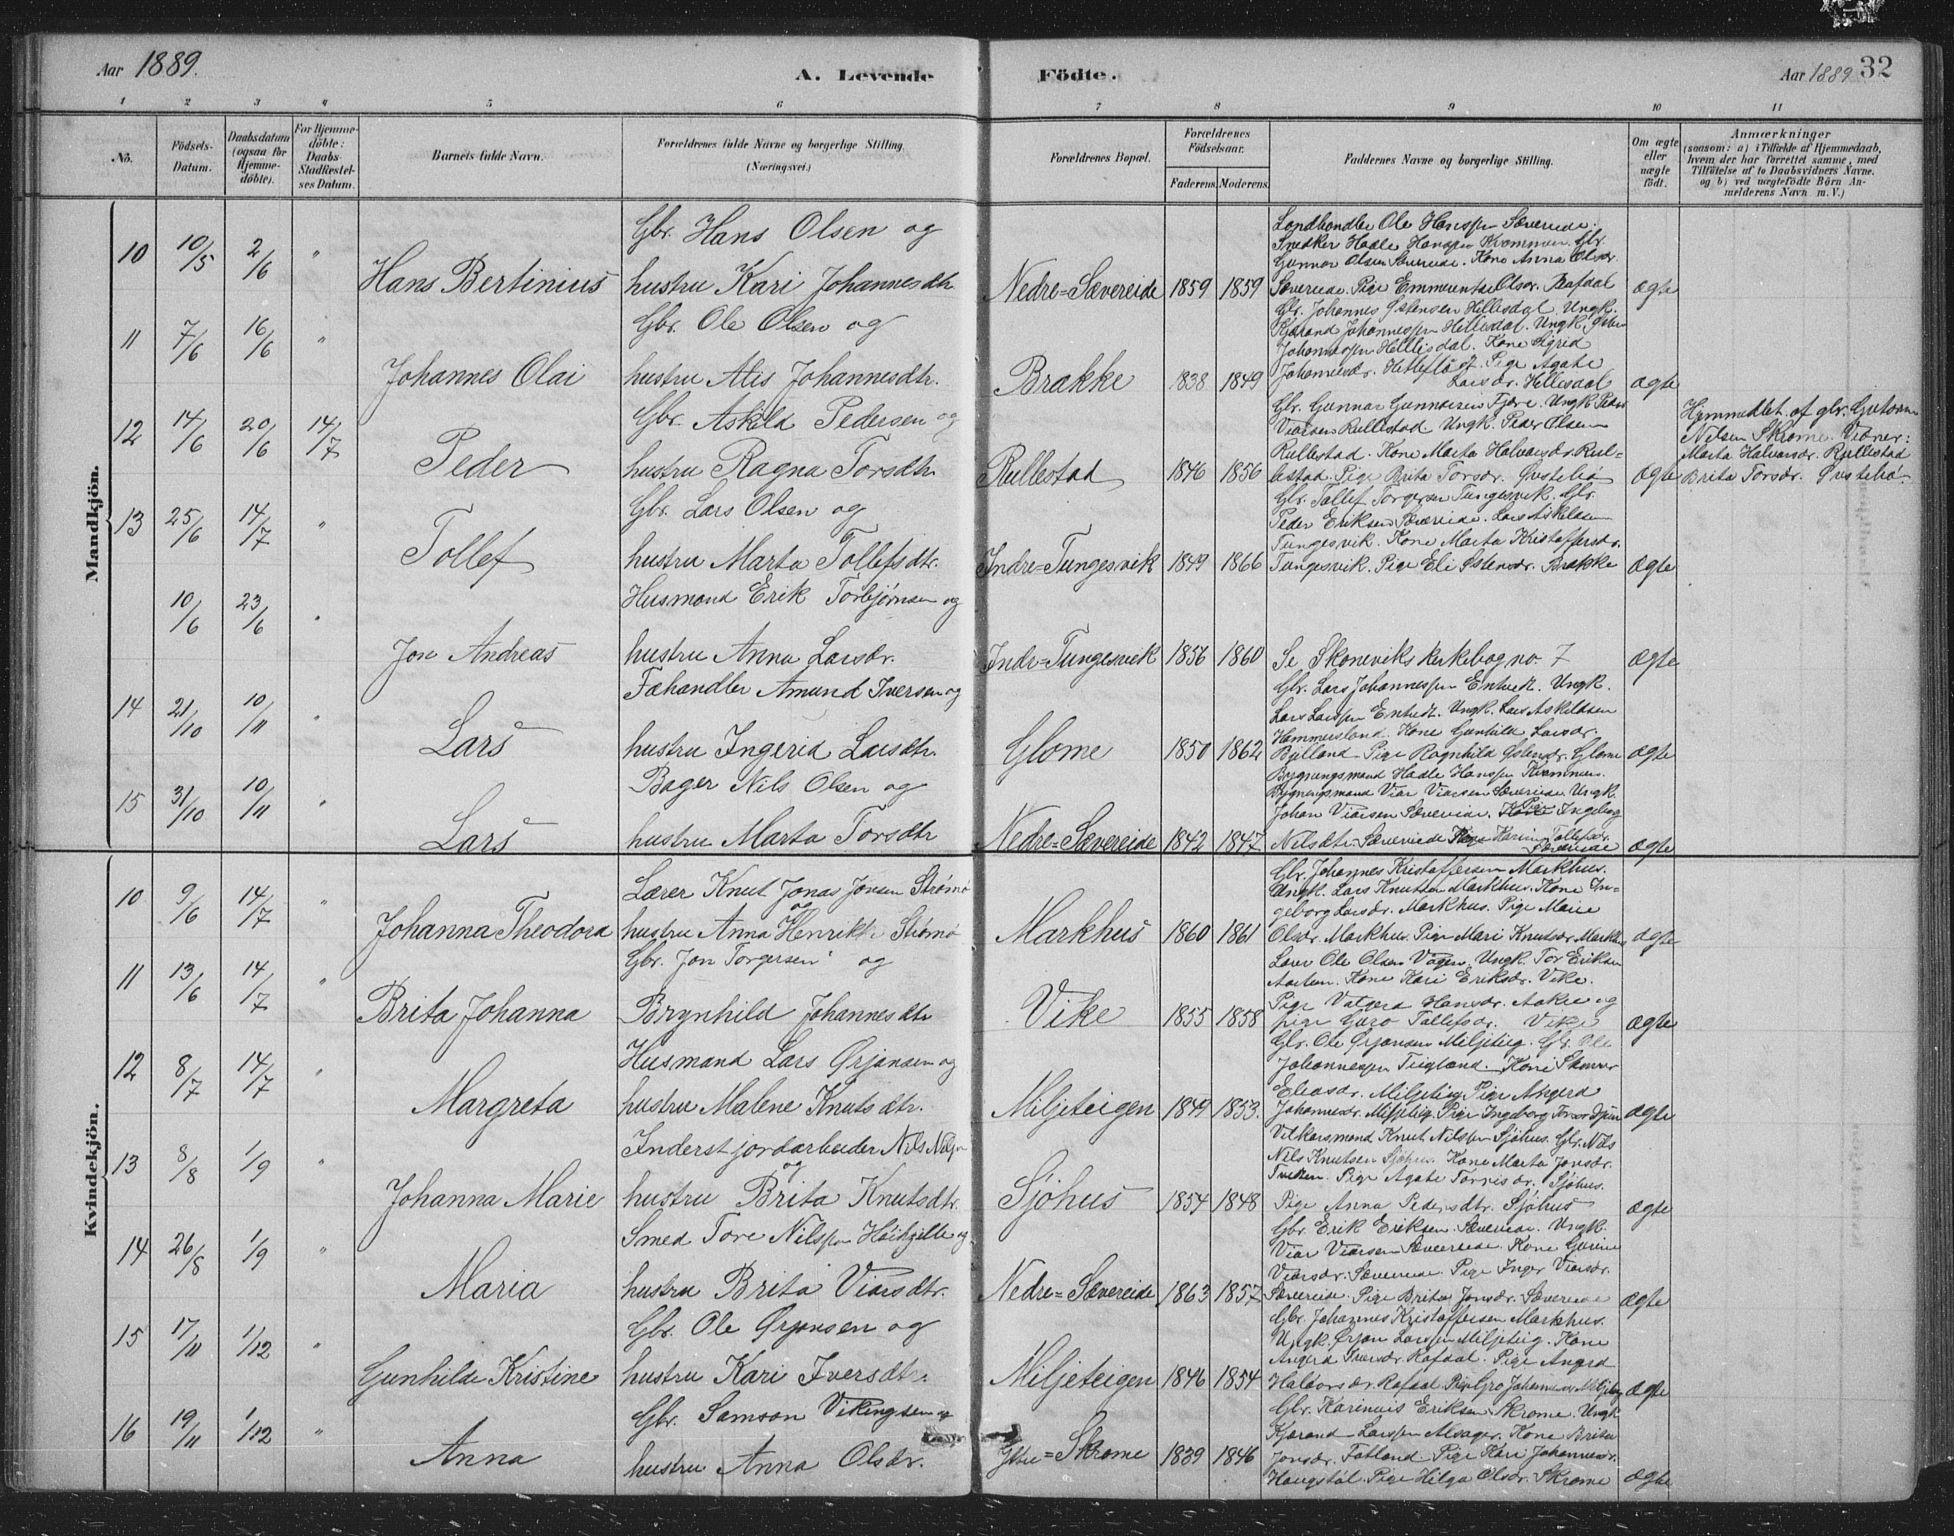 Aar 1889.
A. Levende Födte.
Aar 1889 32
1 2 3 4 5 6 7 8 9 10 11
No.
Födsels-Datum.
Daabsdatum (ogsaa for Hjemmedöbte).
For Hjemmedöbte: Daabs-Stadfæstelses Datum.
Barnets fulde Navn.
Forældrenes fulde Navne og borgerlige Stilling. (Næringsvei.)
Forældrenes Bopæl.
Forældrenes Födselsaar.
Faderens. Moderens.
Faddernes Navne og borgerlige Stilling.
Om ægte eller uægte födt.
Anmærkninger
(saasom: a) i Tilfælde af Hjemmedaab,
hvem der har forrettet samme, med
Tilföielse af to Daabsvidners Navne.
og b) ved uægtefödte Börn An-
melderens Navn m. V.)
Mandkjön.
10 10/5 2/6 " Hans Bertinius
Gbr. Hans Olsen og
hustru Kari Johannesdtr
Nedre=Sævereide 1859 1859
Landhandler Ole Hanssen Sævereide.
Snedker Hadle Hanssen Kvammen. Gbr.
Gunnar Olsen Sævereide. Kone Anna Olsdr.
Sævereide. Pige Emmerentse Olsdr. Rafdal
ægte
11 7/6 16/6 " Johannes Olai
Gbr. Ole Olsen og
hustru Alis Johannesdtr.
Brække 1838 1849
Gbr. Johannes Østensen Hillesdal. Ungk.
Johannessen Hillesdal. Ungk.
Johannessen Hillesdal. Kone Sigrid
Johannesdr. Pige Agate
Larsdr. Hillesdal
ægte
12 14/6 20/6 14/7 Peder
Gbr. Askild Pedersen og
hustru Ragna Torsdtr.
Rullestad 1846 1856
Gbr. Gunnar Gunnarsen Fjære. Ungk. Peder
Viarsen Rullestad Ungk. Peder Olsen
Rullestad. Kone Marta Halvarsdr. Rul-
lestad. Pige Brita Torsdr.
ægte
Hjemmedbt. af gbr. Gutorm
Nilsen Skrome. Vidner:
Marta Halvarsdr. Rullestad
Brita Torsdr.
13 25/6 14/7 " Tollef
Gbr. Lars Olsen og
hustru Marta Tollefsdtr.
Indre=Tungesvik 1849 1866
Gbr. Tollef Torgersen Tungesvik. Gbr.
Peder Eriksen Sævereide. Lars Askildsen
Tungesvik. Kone Marta Kristoffersdr.
Tungesvik. Pige Eli Østensdr. Brække
ægte
10/6 23/6 " Jon Andreas
Husmand Erik Torbjørnsen og
hustru Anna Larsdr.
Indr=Tungesvik 1856 1860
Se Skoneviks kirkebog no. 7
ægte
14 21/10 10/11 " Lars
Fæhandler Amund Iversen og
hustru Ingerid Larsdtr.
Glome 1850 1862
Gbr. Lars Johannessen Entvedt. Ungk.
Lars Larssen Entvedt. Ungk. Lars Askildsen
Hammersland. Kone Gunhild Larsdr.
Pige Ragnhild Østensdr. Glome
ægte
15 31/10 10/11 " Lars
Bager Nils Olsen og
hustru Marta Torsdtr
Nedre=Sævereide 1842 1847
Bygningsmand Hadle Hanssen Kvammen.
Bygningsmand Viar Viarsen Sævereide. Ungk.
Johan Viarsen Sævereide. Pige Ingeborg
Nilsdtr. Sævereide Karin Tollefsdr.
Sævereide
ægte
Kvindekjön.
10 9/6 14/7 " Johanna Theodora
Lærer Knut Jonas Jonsen Strømø
og
hustru Anna Strømø
Markhus 1860 1861
Gbr. Johannes Kristoffersen Markhus.
Ungk. Lars Knutsen Markhus. Kone In-
geborg Larsdr. Markhus. Pige Marie
Olsdr. Markhus. Pige Mari Knutsdr. Markhus
ægte
11 13/6 14/7 " Brita Johanna
Gbr. Jon Torgersen og
Brynhild Johannesdtr
Vike 1855 1858
Lærer Ole Olsen Vågen. Ungk. Tor Eriksen
Kone Kari Eriksdr. Vike.
Pige Valgerd Hansdr. Aakre og
pige Guro Tollefsdr. Vike
ægte
12 8/7 14/7 " Margreta
Husmand Lars Ørjansen og
hustru Malene Knutsdtr.
Miljeteigen 1849 1853.
Gbr. Ole Ørjansen Miljeteig. Gbr. Ole
Johannessen Kone
Eleasdr. Miljeteig. Pige Angerd
Johannesdr. Miljeteig. Pige Ingeborg
ægte
13 8/8 1/9 " Johanna Marie
Inderst jordarbeider Nils Nilssen
og
hustru Brita Knutsdtr.
Sjöhus 1854 1848
Vilkarsmand Knut Nilssen Sjöhus. Gbr. Nils
Nils Knutsen Sjöhus. Kone Marta Jonsdr.
Pige Agate Sjöhus.
Pige Anna Pedersdtr. Sjöhus
ægte
14 26/8 1/9 " Maria
Smed Tore Nilssen og
hustru Brita Viarsdtr.
Nedre=Sævereide 1863 1857
Gbr. Erik Eriksen Sævereide. Ungk.
Viar Viarsen Sævereide. Kone Gurine
Viarsdr. Sævereide. Pige Inger Viarsdr.
Sævereide. Pige Brita Jonsdr. Sævereide
ægte
15 17/11 1/12 " Gunhilde Kristine
Gbr. Ole Ørjansen og
hustru Kari Iversdtr.
Miljeteigen 1846 1854
Gbr. Johannes Kristoffersen Markhus.
Ungk. Ørjan Larssen Miljeteig. Kone
Angerd Iversdr. Rafdal. Pige Angerd
Haldorsdr. Rafdal Pige Gro Johannesdr. Miljeteig
ægte
16 19/11 1/12 " Anna
Gbr. Samson Vikingsen og
hustru Anna Olsdr.
Ytre=Skrome 1839 1846
Gbr. Eriksen Skrome. Ungk
Larssen Alsager. Kone Brita
Jonsdr. Fatland. Pige Kari Johannesdr.
Haugstøl. Pige Helga Olsdr. Skrome
ægte